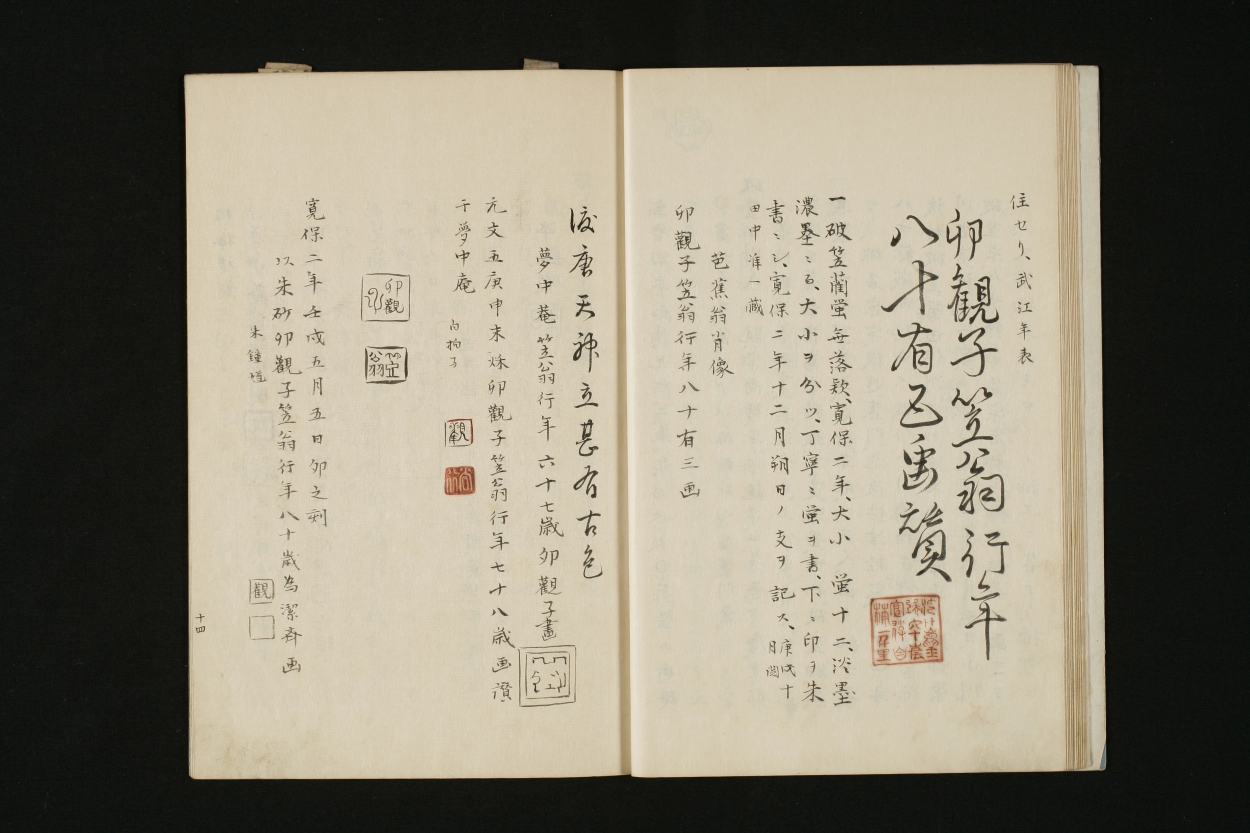 住セリ、武江年表
卯觀子笠翁行年
八十有五画賛
一破笠蘭蛍無落款、寛保二年、大小ノ蛍十二、淡墨
濃墨ニ而、大小ヲ分ツ、丁寧ニ蛍ヲ書、下ニ印ヲ朱
書ニシ、寛保二年十二月朔日ノ支ヲ記ス、庚戌十月
田中 一藏
芭蕉翁肖像
卯觀子笠翁行年八十有三画
渡唐天神立甚有古色
夢中菴笠翁行年六十七歳卯觀子畫
元文五庚申末秌卯觀子笠翁行年七十八歳画讃
于夢中庵
卯觀
笠翁
觀
寛保二年壬戌五月五日卯之刻
以朱砂卯觀子笠翁行年八十歳為潔斉画
朱鍾馗
觀
十四